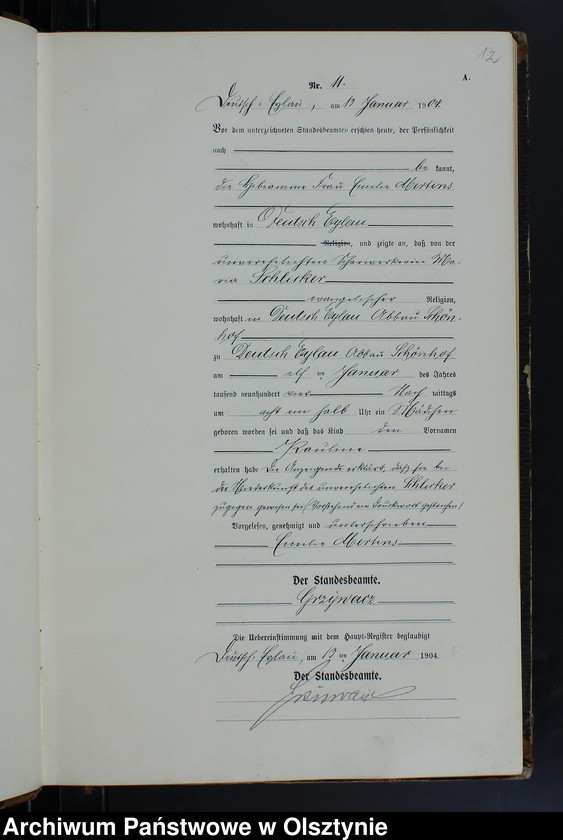 12
Nr. 11.
A.
Deutsch-Eylau, am 13 Januar 1904
Vor dem unterzeichneten Standesbeamten erschien heute, der Persönlichkeit
nach
be kannt,
die Hebeamme Frau Emilie Mertens
wohnhaft in Deutsch Eylau
Religion, und zeigte an, daß von der
unverehelichten Scharwerkerin Ma-
ria Schlicker
evangelischer Religion,
wohnhaft in Deutsch Eylau Abbau Schön-
hof
zu Deutsch Eylau Abbau Schönhof
am elf ten Januar des Jahres
tausend neunhundert vier Nach mittags
um acht ein halb Uhr ein Mädchen
geboren worden sei und daß das Kind den Vornamen
Pauline
erhalten habe Die Anzeigende erklärt, daß sie bei
der Niederkunft der unverehelichten Schlicker
zugegen gewesen sei/ Vorstehend ein Druckwort gestrichen/
Vorgelesen, genehmigt und unterschrieben
Emilie Mertens
Der Standesbeamte.
Grzywacz
Die Uebereinstimmung mit dem Haupt-Register beglaubigt
Deutsch-Eylau, am 13 ten Januar 1904.
Der Standesbeamte.
Archiwum Państwowe w Olsztynie